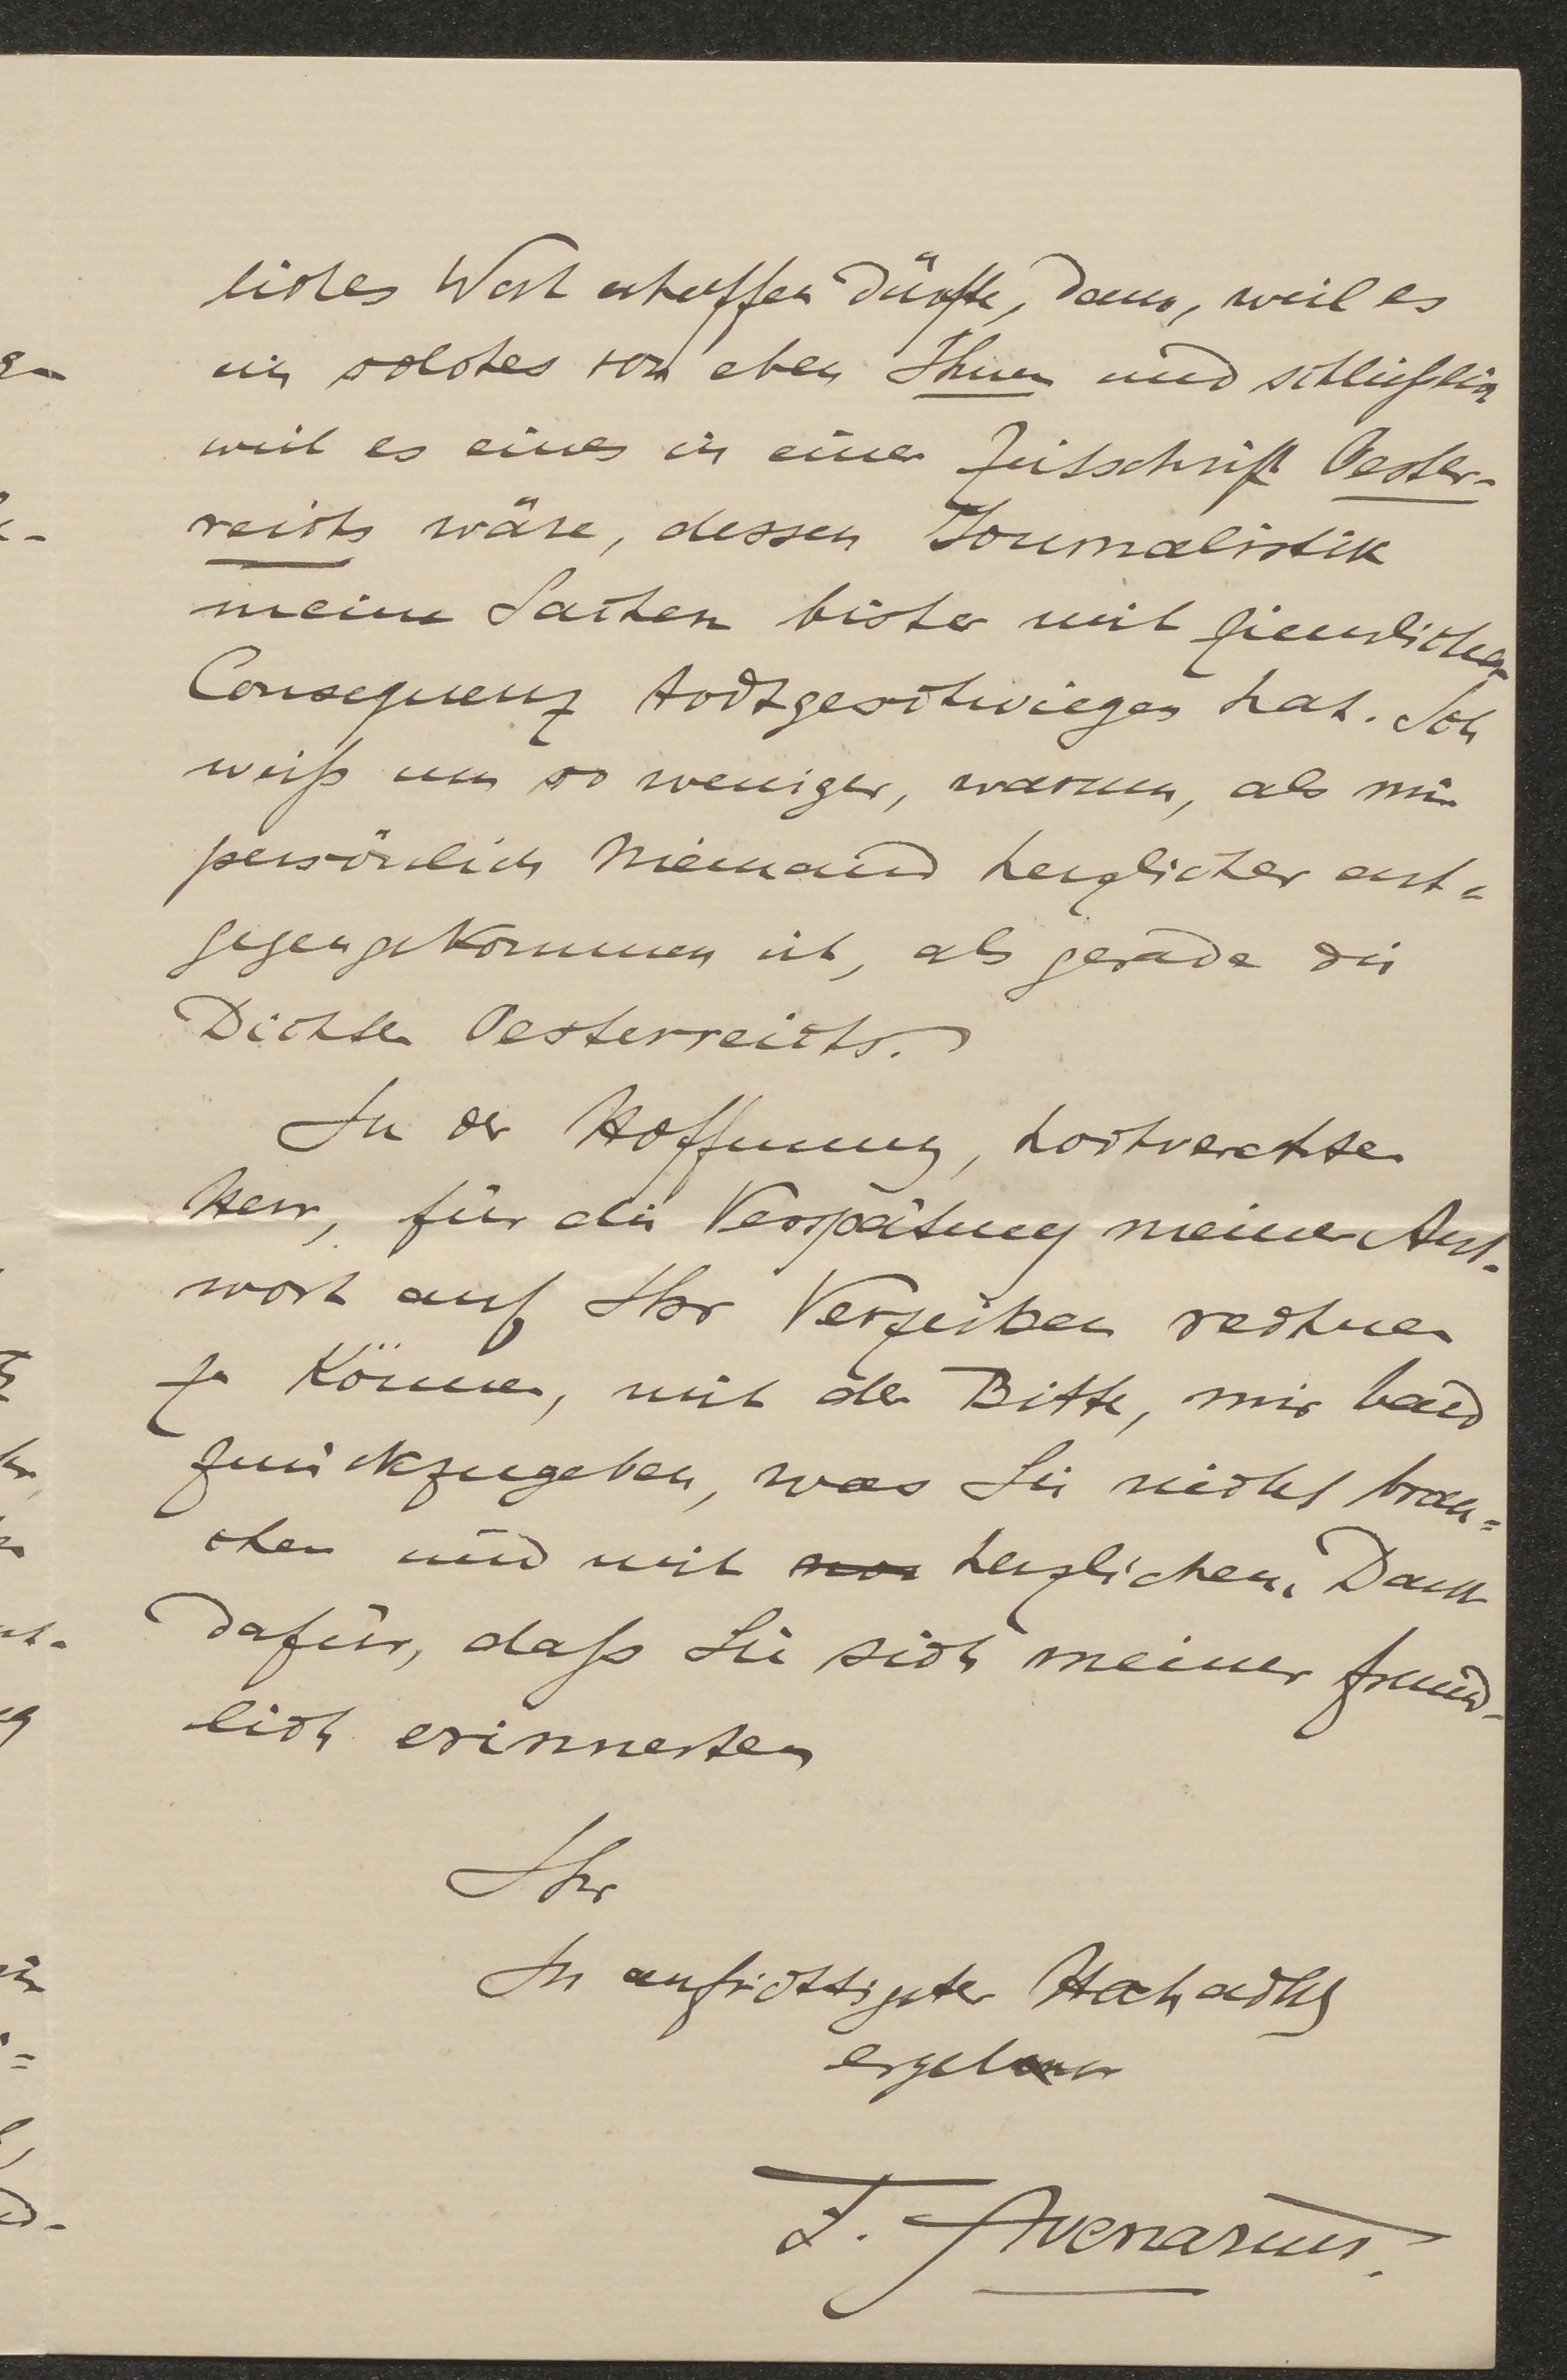 liches Wort erhoffen dürfte, dann, weil es
ein solches von eben Ihnen und schließlich
weil es eines in einer Zeitschrift Oester-
reichs wäre, dessen Journalistik
meine Sachen bisher mit ziemlicher
Consequenz todtgeschwiegen hat. Ich
weiß um so weniger, warum, als mir
persönlich Niemand herzlicher ent-
gegengekommen ist, als gerade die
Dichter Oesterreichs.
In der Hoffnung, hochverehrter
Herr, für die Verspätung meiner Ant-
wort auf Ihr Verzeihen rechnen
zu können, mit der Bitte, mir bald
zurückzugeben, was Sie nicht brau-
chen und mit herzlichem Dank
dafür, daß Sie sich meiner freund-
lich erinnerten
Ihr
In aufrichtigster Hochachtg
ergebener
F. Avenarius.